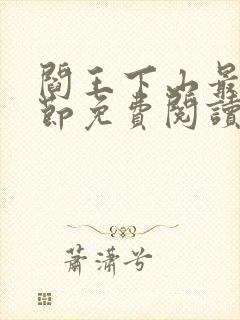 閻王下山最
節免費閱讀
蕭瀟兮